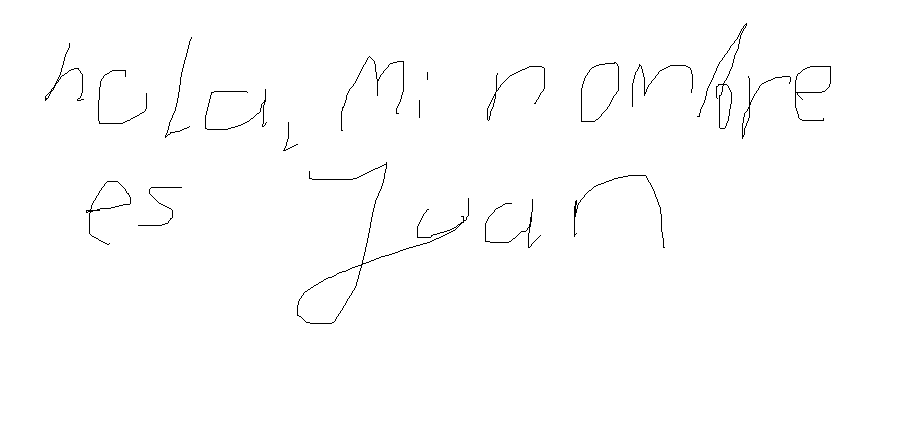 hola, mi nombre
es Juan